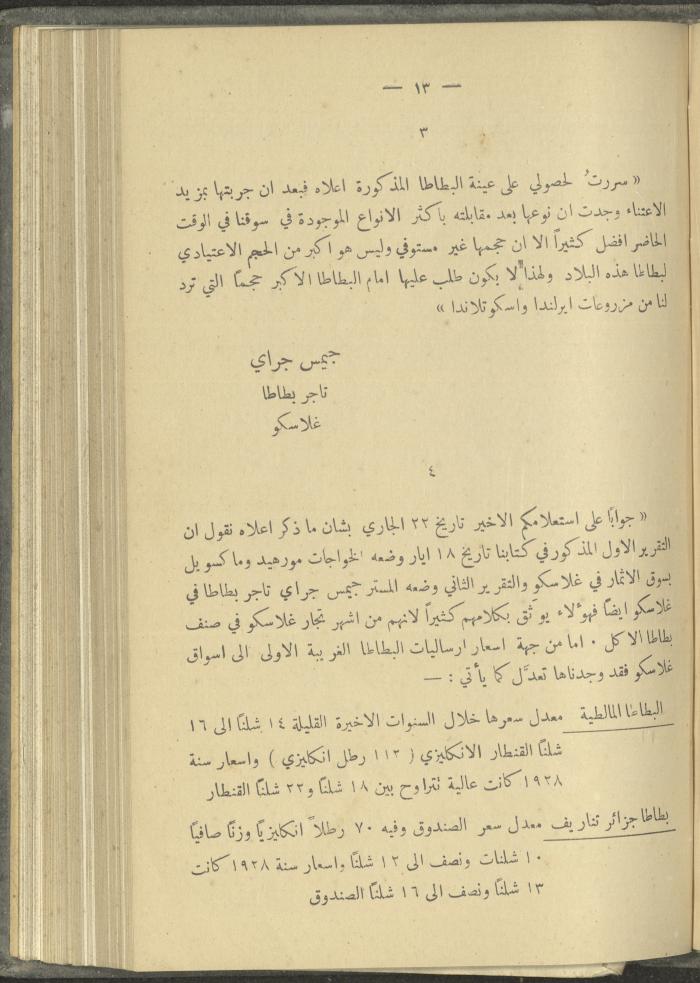 — ١٣ —
٣
« سررتُ لحصولي على عينة البطاطا المذكورة اعلاه فبعد ان جربتها بمزيد
الاعتناء وجدت ان نوعها بعد مقابلته باكثر الانواع الموجودة في سوقنا في الوقت
الحاضر افضل كثيراً الا ان حجمها غير مستوفي وليس هو اكبر من الحجم الاعتيادي
لبطاطا هذه البلاد ولهذا لا يكون طلب عليها امام البطاطا الاكبر حجماً التي ترد
لنا من مزروعات ايرلندا واسكوتلاندا »
جيمس جراي
تاجر بطاطا
غلاسكو
٤
« جواباً على استعلامكم الاخير تاريخ ٢٢ الجاري بشان ما ذكر اعلاه نقول ان
التقرير الاول المذكور في كتابنا تاريخ ١٨ ايار وضعه الخواجات مورهيد وماكسويل
بسوق الاثمار في غلاسكو والتقرير الثاني وضعه المستر جيمس جراي تاجر بطاطا في
غلاسكو ايضاً فهؤلاء يوثق بكلامهم كثيراً لانهم من اشهر تجار غلاسكو في صنف
بطاطا الاكل ٠ اما من جهة اسعار ارساليات البطاطا الغريبة الاولى الى اسواق
غلاسكو فقد وجدناها تعدَّل كما يأتي : —
البطاطا المالطية معدل سعرها خلال السنوات الاخيرة القليلة ١٤ شلناً الى ١٦
شلناً القنطار الانكليزي ( ١١٢ رطل انكليزي ) واسعار سنة
١٩٢٨ كانت عالية تتراوح بين ١٨ شلناً و٢٢ شلناً القنطار
بطاطا جزائر تناريف معدل سعر الصندوق وفيه ٧٠ رطلاً انكليزياً وزناً صافياً
١٠ شلنات ونصف الى ١٢ شلناً واسعار سنة ١٩٢٨ كانت
١٣ شلناً ونصف الى ١٦ شلناً الصندوق